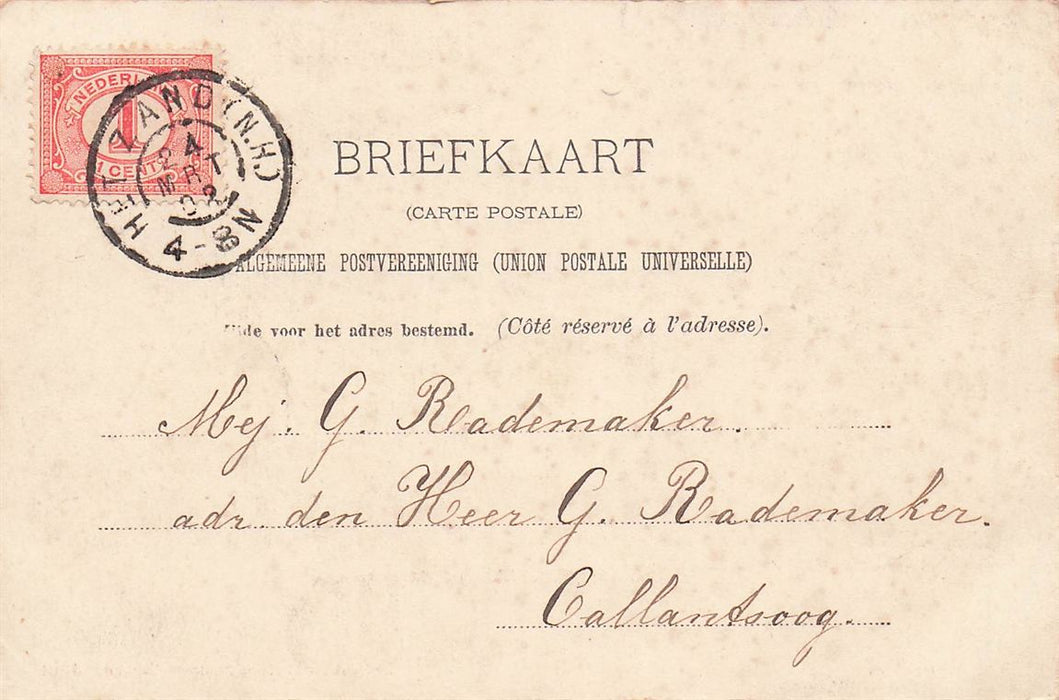 NEDERL
1
1 CENT
HET ZAND (N.H.)
24
MRT
03
4-8N
BRIEFKAART
(CARTE POSTALE)
ALGEMEENE POSTVEREENIGING (UNION POSTALE UNIVERSELLE)
voor het adres bestemd. (Côté réservé à l'adresse).
Mej. G. Rademaker.
adr. den Heer G. Rademaker.
Callantsoog.